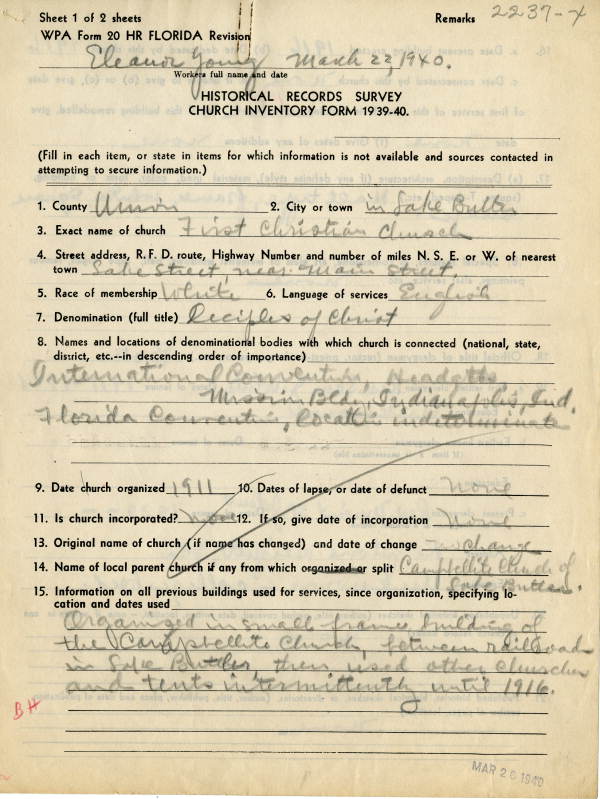 Sheet 1 of 2 sheets Remarks 2237-X
WPA Form 20 HR FLORIDA Revision
Eleanor Young March 22, 1940.
Workers full name and date
HISTORICAL RECORDS SURVEY
CHURCH INVENTORY FORM 1939-40.
(Fill in each item, or state in items for which information is not available and sources contacted in
attempting to secure information.)
1. County Union 2. City or town in Lake Butler
3. Exact name of church First Christian Church
4. Street address, R. F. D. route, Highway Number and number of miles N. S. E. or W. of nearest
town Lake Street, near Main Street.
5. Race of membership White 6. Language of services English
7. Denomination (full title) Deciples of Christ
8. Names and locations of denominational bodies with which church is connected (national, state,
district, etc.--in descending order of importance)
International Convention, Headqtrs
Mission Bldg, Indianapolis, Ind.
Florida Convention, location indeterminate
9. Date church organized 1911 10. Dates of lapse, or date of defunct None
11. Is church incorporated? None 12. If so, give date of incorporation None
13. Original name of church (if name has changed) and date of change no change
14. Name of local parent church if any from which organized or split Campbellite Church of
Lake Butler.
15. Information on all previous buildings used for services, since organization, specifying lo-
cation and dates used
Organized in small frame building of
the Campbellite Church, between railroads
in Lake Butler, then used other churches
and tents intermittently until 1916.
BH
MAR 26 1940